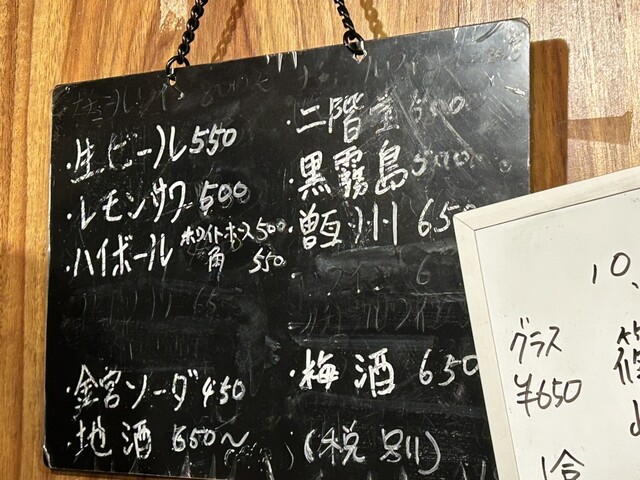 ・生ビール 550
・レモンサワー 500
・ハイボール ホワイトホース 500
角 550
・金宮ソーダ 450
・地酒 650～
・二階堂 500
・黒霧島 500
・甑州 650
・梅酒 650
(税別)
10.
グラス
¥650
1合